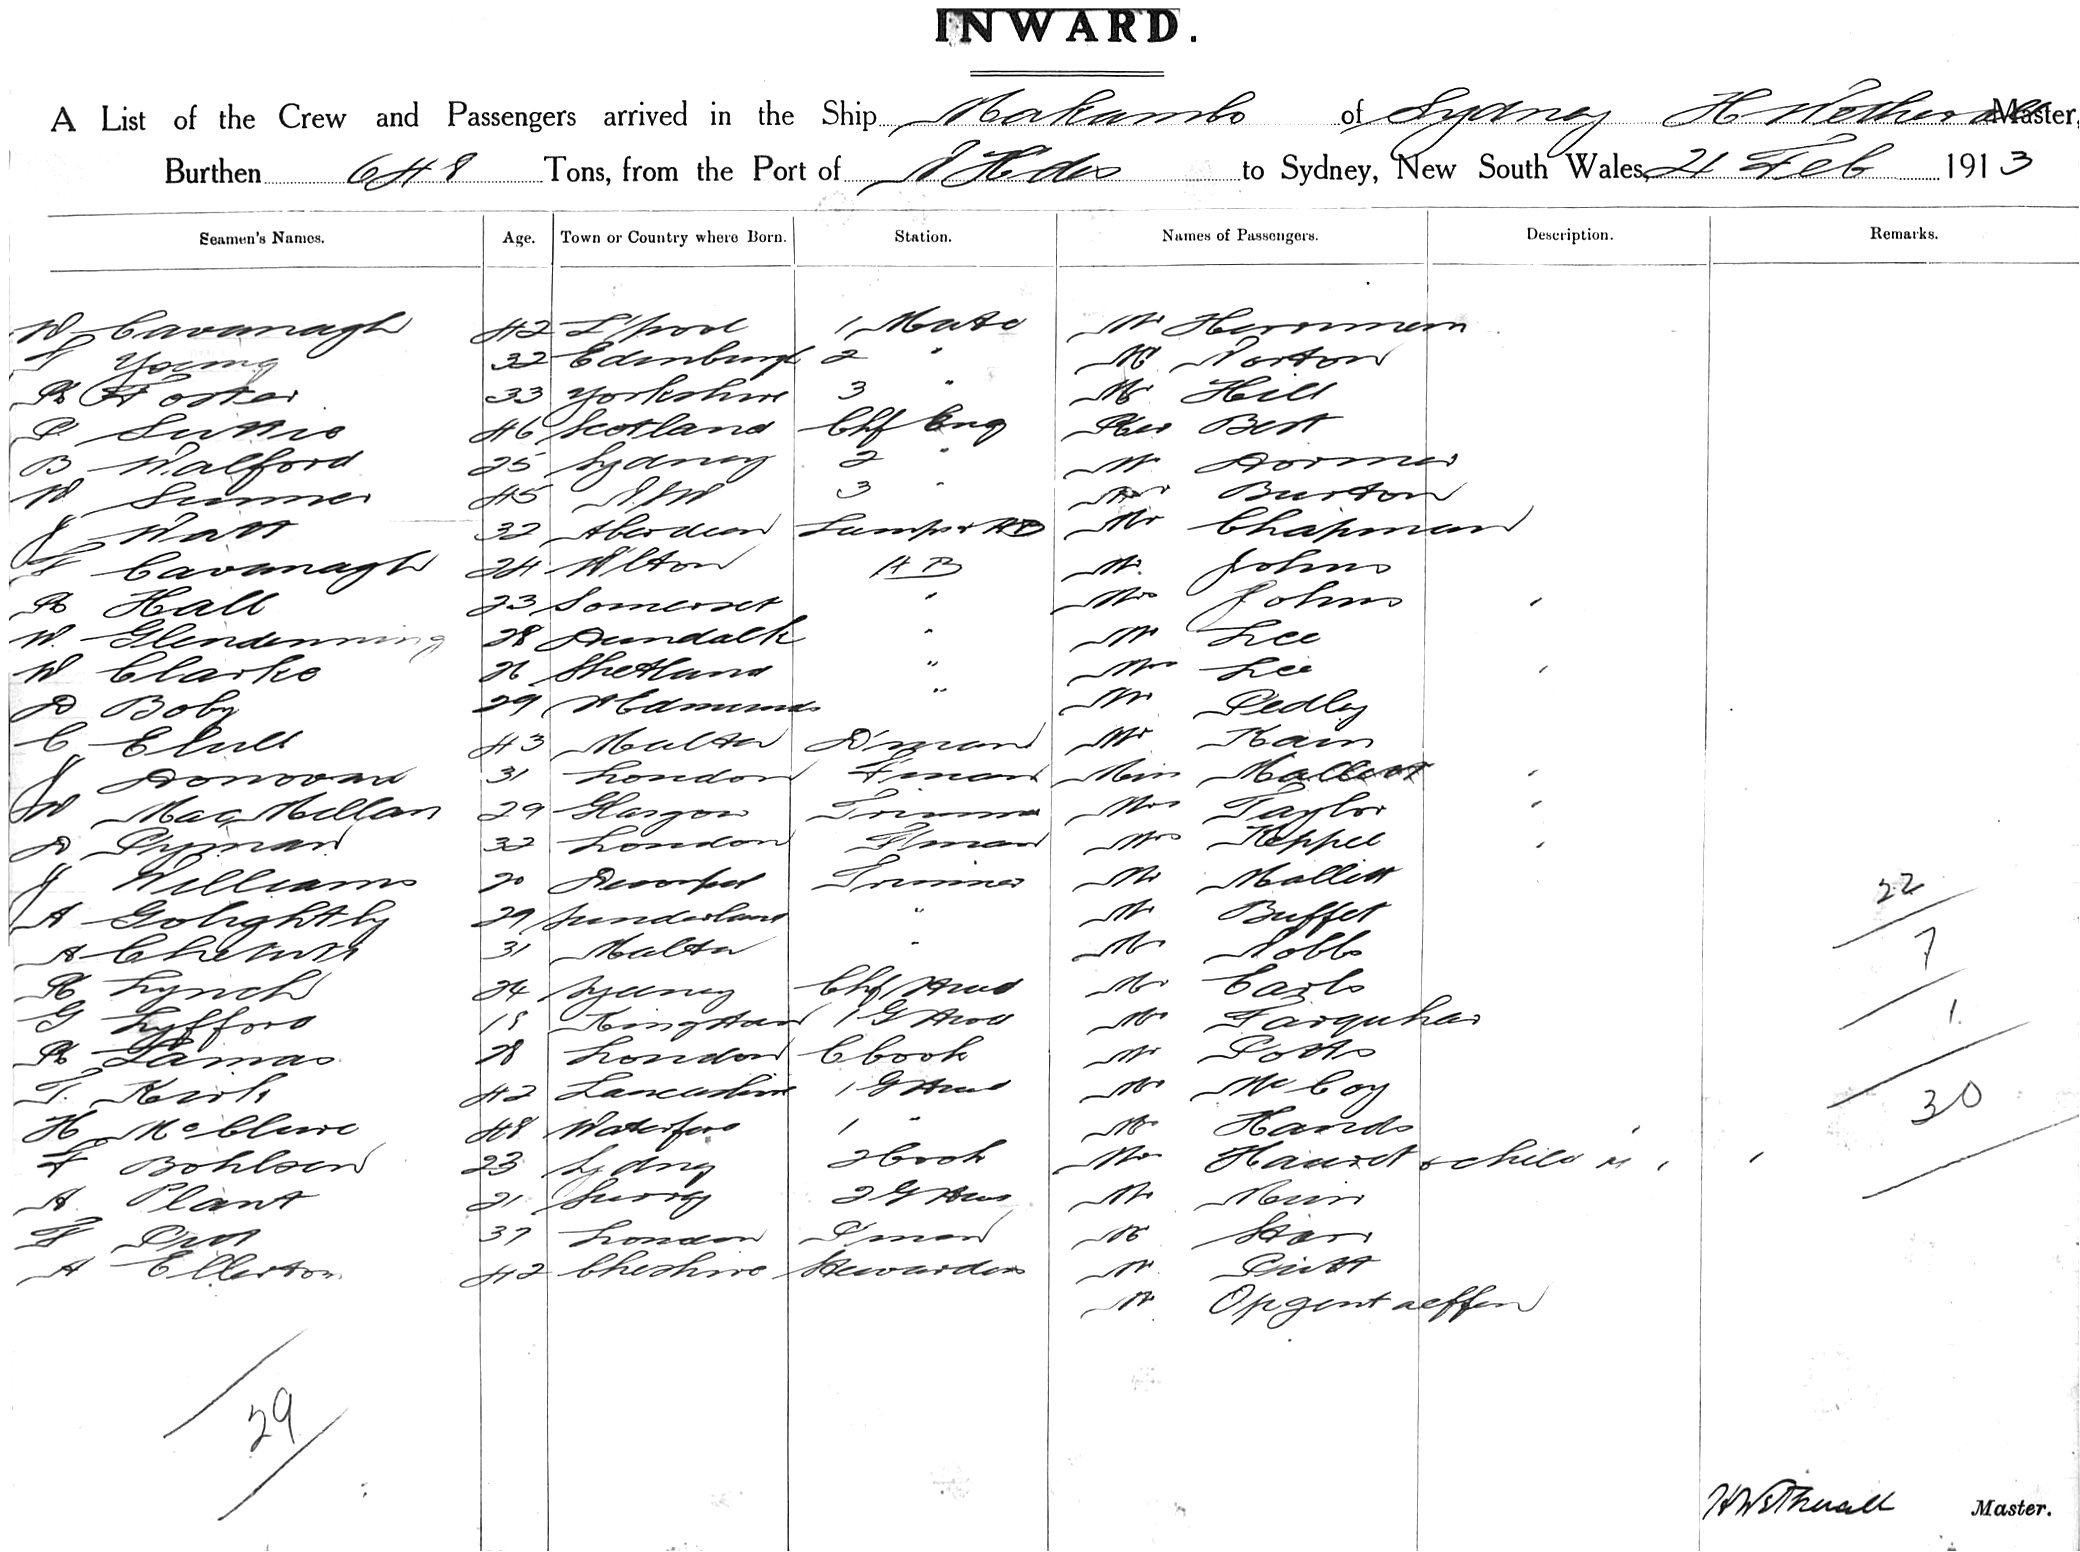 INWARD.
A List of the Crew and Passengers arrived in the Ship Makambo of Sydney H Wetherall Master,
Burthen 648 Tons, from the Port of N Hdes to Sydney, New South Wales, 21 Feb 1913
Seamen's Names. Age. Town or Country where Born. Station. Names of Passengers. Description. Remarks.
W Cavanagh 42 L'pool 1 Mate Mr Herrmern
F Young 32 Edinburgh 2 " Mr Norton
R Foster 33 Yorkshire 3 " Mr Hill
P Suttie 46 Scotland Chf Eng Rev Bert
B Walford 25 Sydney 2 " Mr Dormer
W Sumner 45 N.S.W 3 " Burton
J Watt 32 Aberdeen Lamps & AB Mr Chapman
F Cavanagh 24 Wilton AB Mr. Johns
R Hall 23 Somerset " Mrs Johns "
W. Glendenning 28 Dundalk " Mr Lee
W Clarke 26 Shetland " Mrs Lee "
D Boby 29 " Mr Pedley
C Elull 43 Malta D'man Mr Kain
J Donovan 31 London F'man Miss Mallett "
W MacMillan 29 Glasgow Trimmer Mrs Taylor "
D Pyman 32 London F'man Mrs Keppel "
J Williams 20 Devonport Trimmer Mr Mallitt
A Golightly 29 Sunderland " Mr Buffet 22
A 31 Malta " Mr Nobbs 7
R Lynch 24 Sydney Chf Stwd Mr Carlo
G Lyfford 18 Kingstown 1 G Stwd Mr Farquhar 1.
R Lamas 28 London C Cook Mr Potts
T. Kirk 42 Lancashire 1 G Stwd Mr McCoy 30
H McClure 48 Waterford 1 " Mr Hands
F Bohlsen 23 Sydney 2 Cook Mrs Hauret & child M " "
A Plant 21 Surrey 2 G Stwd Mr Muir
F 37 London P'man Mr Starr
A Ellerton 42 Cheshire Stewardess Mr Pitt
Mr Opgentaeffen
29
H Wetherall Master.